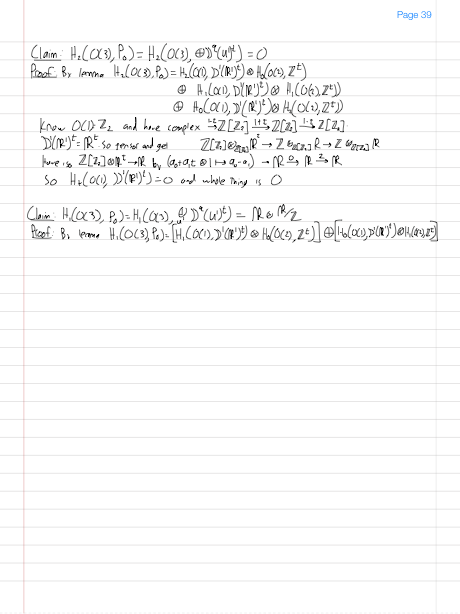 Page 39
Claim: H₂(O(3), P₀) = H₂(O(3), ⊕ D^α(U¹)^t) = 0
Proof: By lemma H₂(O(3), P₀) = H₂(O(1), D'(R¹)^t) ⊗ H₀(O(2), Z^t)
⊕ H₁(O(1), D'(R¹)^t) ⊗ H₁(O(2), Z^t)
⊕ H₀(O(1), D'(R¹)^t) ⊗ H₂(O(2), Z^t)
Know O(1) Z₂ and have complex Z[Z₂] Z[Z₂] Z[Z₂]
D'(R¹)^t = R^t so tensor and get Z[Z₂] ⊗_Z[Z₂] R^t → Z ⊗_Z[Z₂] R → Z ⊗_Z[Z₂] R
Have iso Z[Z₂] ⊗ R^t → R by (a₀+a₁t ⊗ 1 ↦ a₀-a₁) → R →⁰ R →² R
So (O(1), D'(R¹)^t) = 0 and whole thing is 0
Claim: H₁(O(3), P₀) = H₁(O(3), ⊕ D^α(U¹)^t) = R ⊗ R/Z
Proof: By lemma H₁(O(3), P₀) = [H₁(O(1), D'(R¹)^t) ⊗ H₀(O(2), Z^t)] ⊕ [H₀(O(1), D'(R¹)^t) ⊗ H₁(O(2), Z^t)]